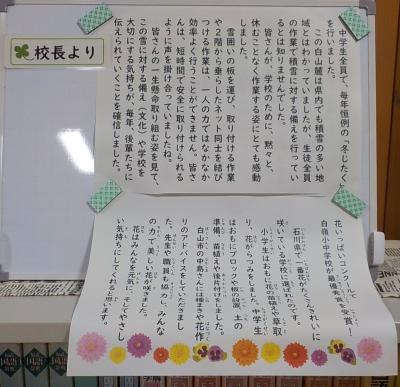 校長より
中学生全員で、毎年恒例の「冬じたく」
を行いました。
この白山麓は県内でも積雪の多い地
域とはわかっていましたが、生徒全員
の作業で積雪に対する備えを行ってい
るとは知りませんでした。
皆さんが、学校のために、黙々と、
休むことなく作業する姿にとても感動
しました。
雪囲いの板を運び、取り付ける作業
や２階から垂らしたネット同士を結び
つける作業は、一人の力ではなかなか
効率よく行うことができません。皆さ
んは、短時間で安全に取り付けられる
ように声を掛け合っていましたね。
皆さんの一生懸命取り組む姿を見て、
この雪に対する備え（文化）や学校を
大切にする気持ちが、毎年、後輩たちに
伝えられていくことを確信しました。
花いっぱいコンクールで
白嶺小中学校が最優秀賞を受賞！
石川県で一番花がたくさんきれいに
咲いている学校に選ばれたのです。
小学生はおもに花の苗植えや草取
り、花がらつみをしました。中学生
はおもにブロックや板の設置、土の
準備、苗植えや後片付けをしました。
白山市の中島さんには種まきや花作
りのアドバイスをしていただきまし
た。先生や職員も協力し、みんな
の力で美しい花が咲きました。
花はみんなを元気に、そしてやさし
い気持ちにしてくれると思います。
国語
国語